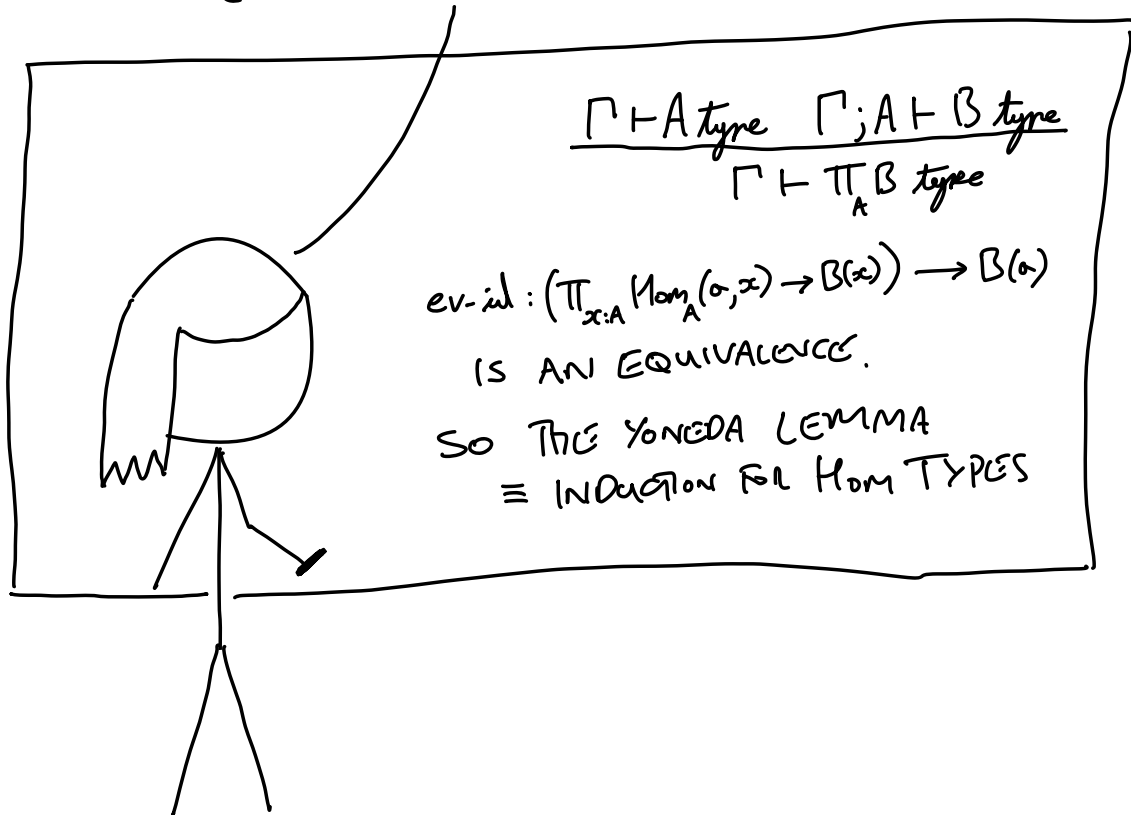 Γ ⊢ A type   Γ; A ⊢ B type
Γ ⊢ Π_A B type
ev-id : (Π_{x:A} Hom_A(a,x) → B(x)) → B(a)
IS AN EQUIVALENCE.
SO THE YONEDA LEMMA
≡ INDUCTION FOR HOM TYPES